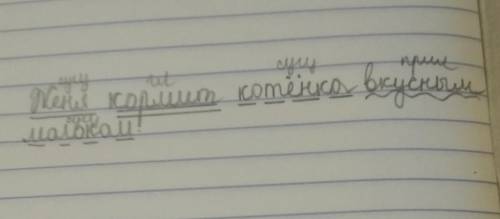 сущ гл сущ прил
Женя кормит котёнка вкусным
сущ
мальком.